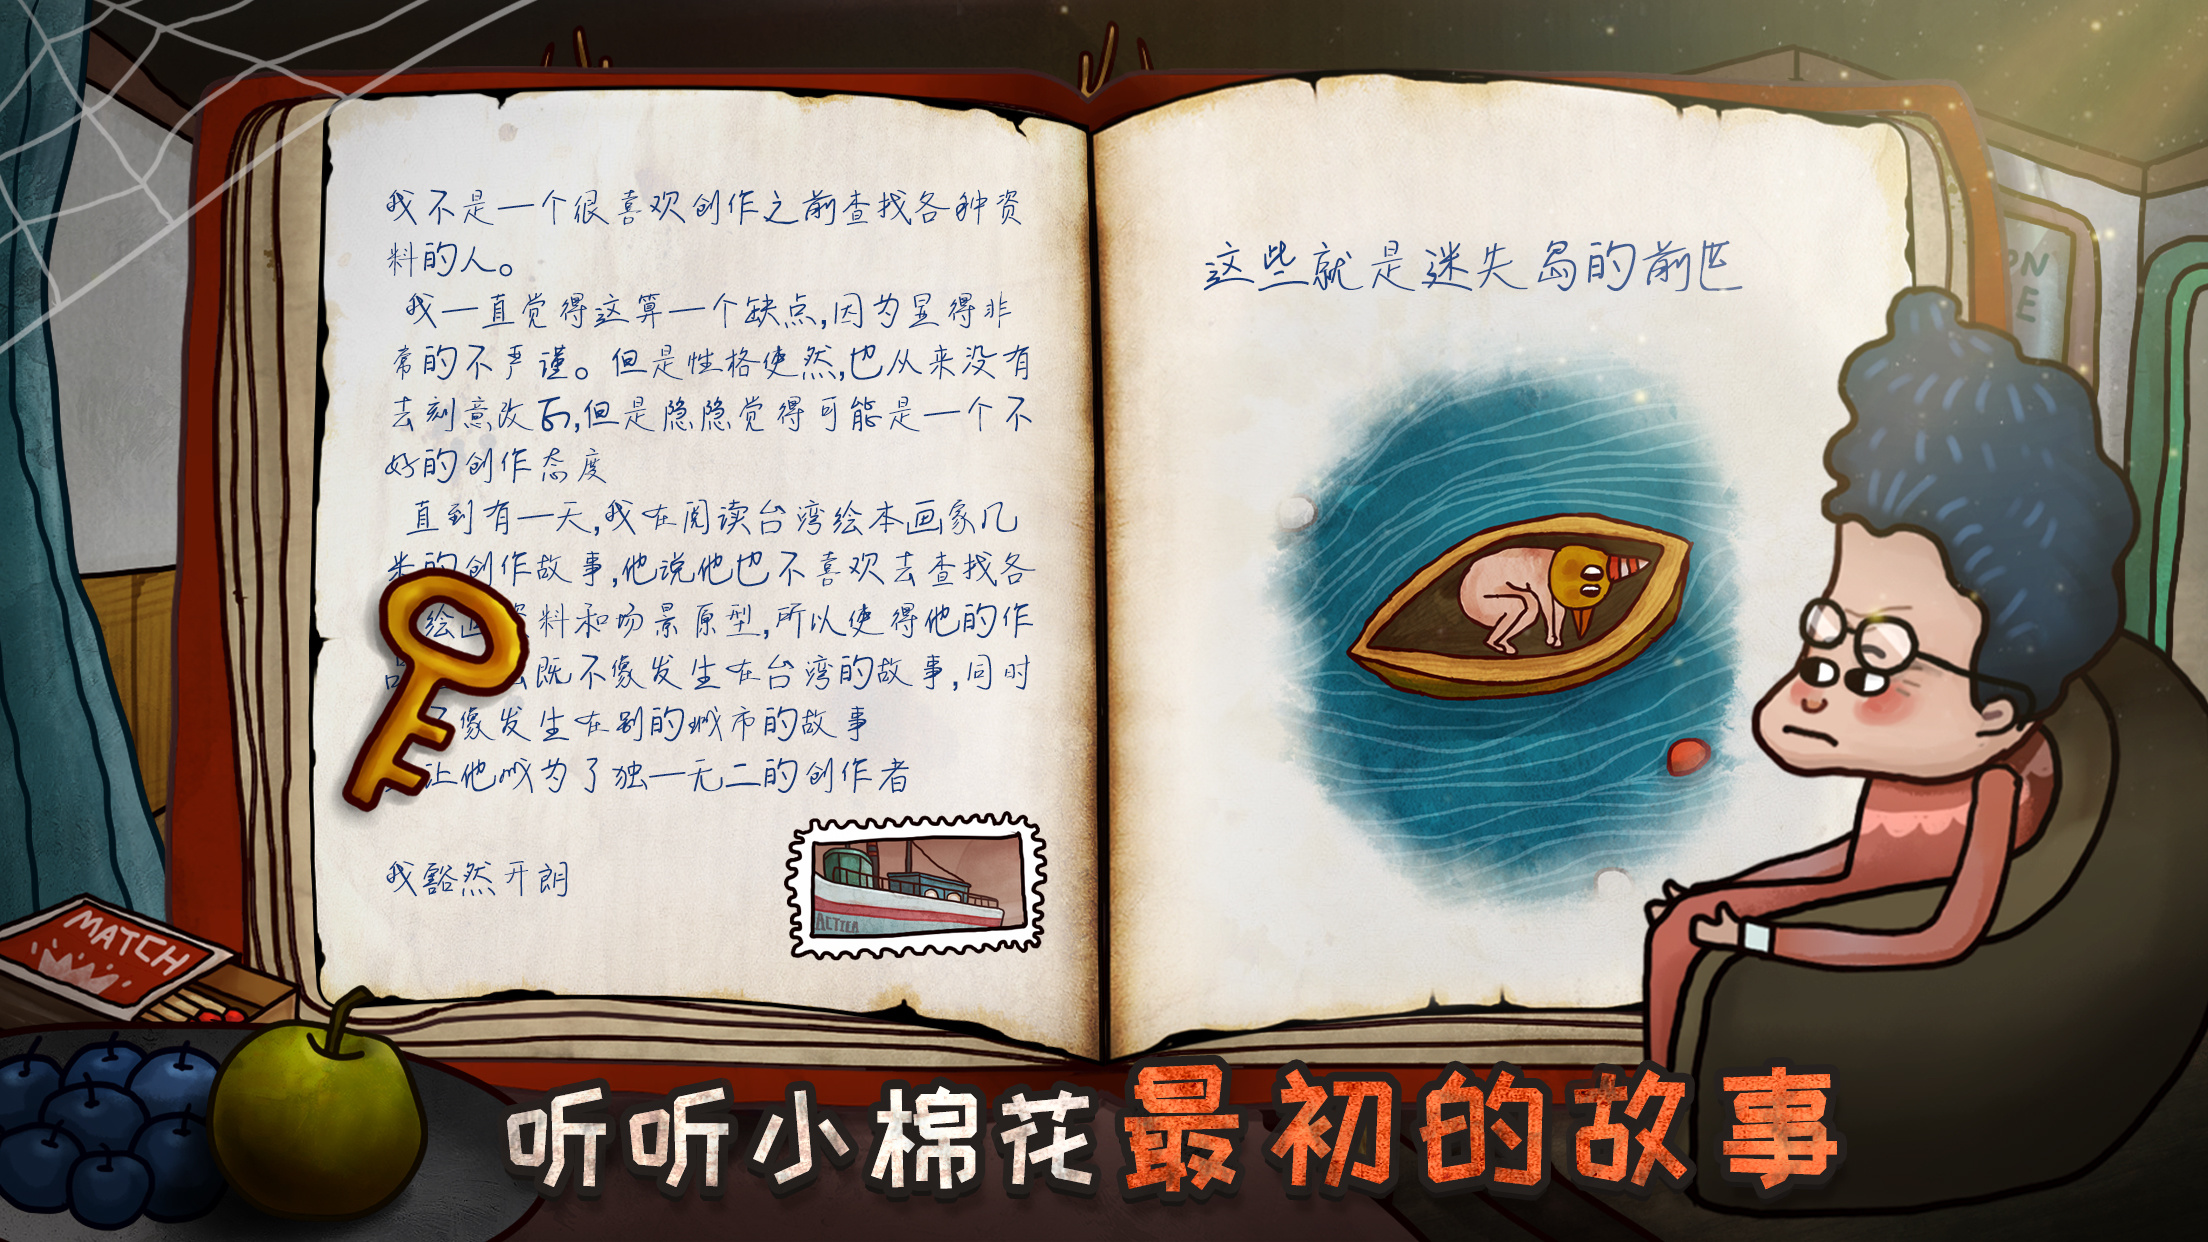 我不是一个很喜欢创作之前查找各种资
料的人。
我一直觉得这算一个缺点,因为显得非
常的不严谨。但是性格使然,也从来没有
去刻意改变,但是隐隐觉得可能是一个不
好的创作态度
直到有一天,我在阅读台湾绘本画家几
米的创作故事,他说他也不喜欢去查找各
绘画资料和场景原型,所以使得他的作
既不像发生在台湾的故事,同时
像发生在别的城市的故事
让他成为了独一无二的创作者
我豁然开朗
ACTTER
这些就是迷失岛的前世
ON
E
MATCH
听听小棉花最初的故事